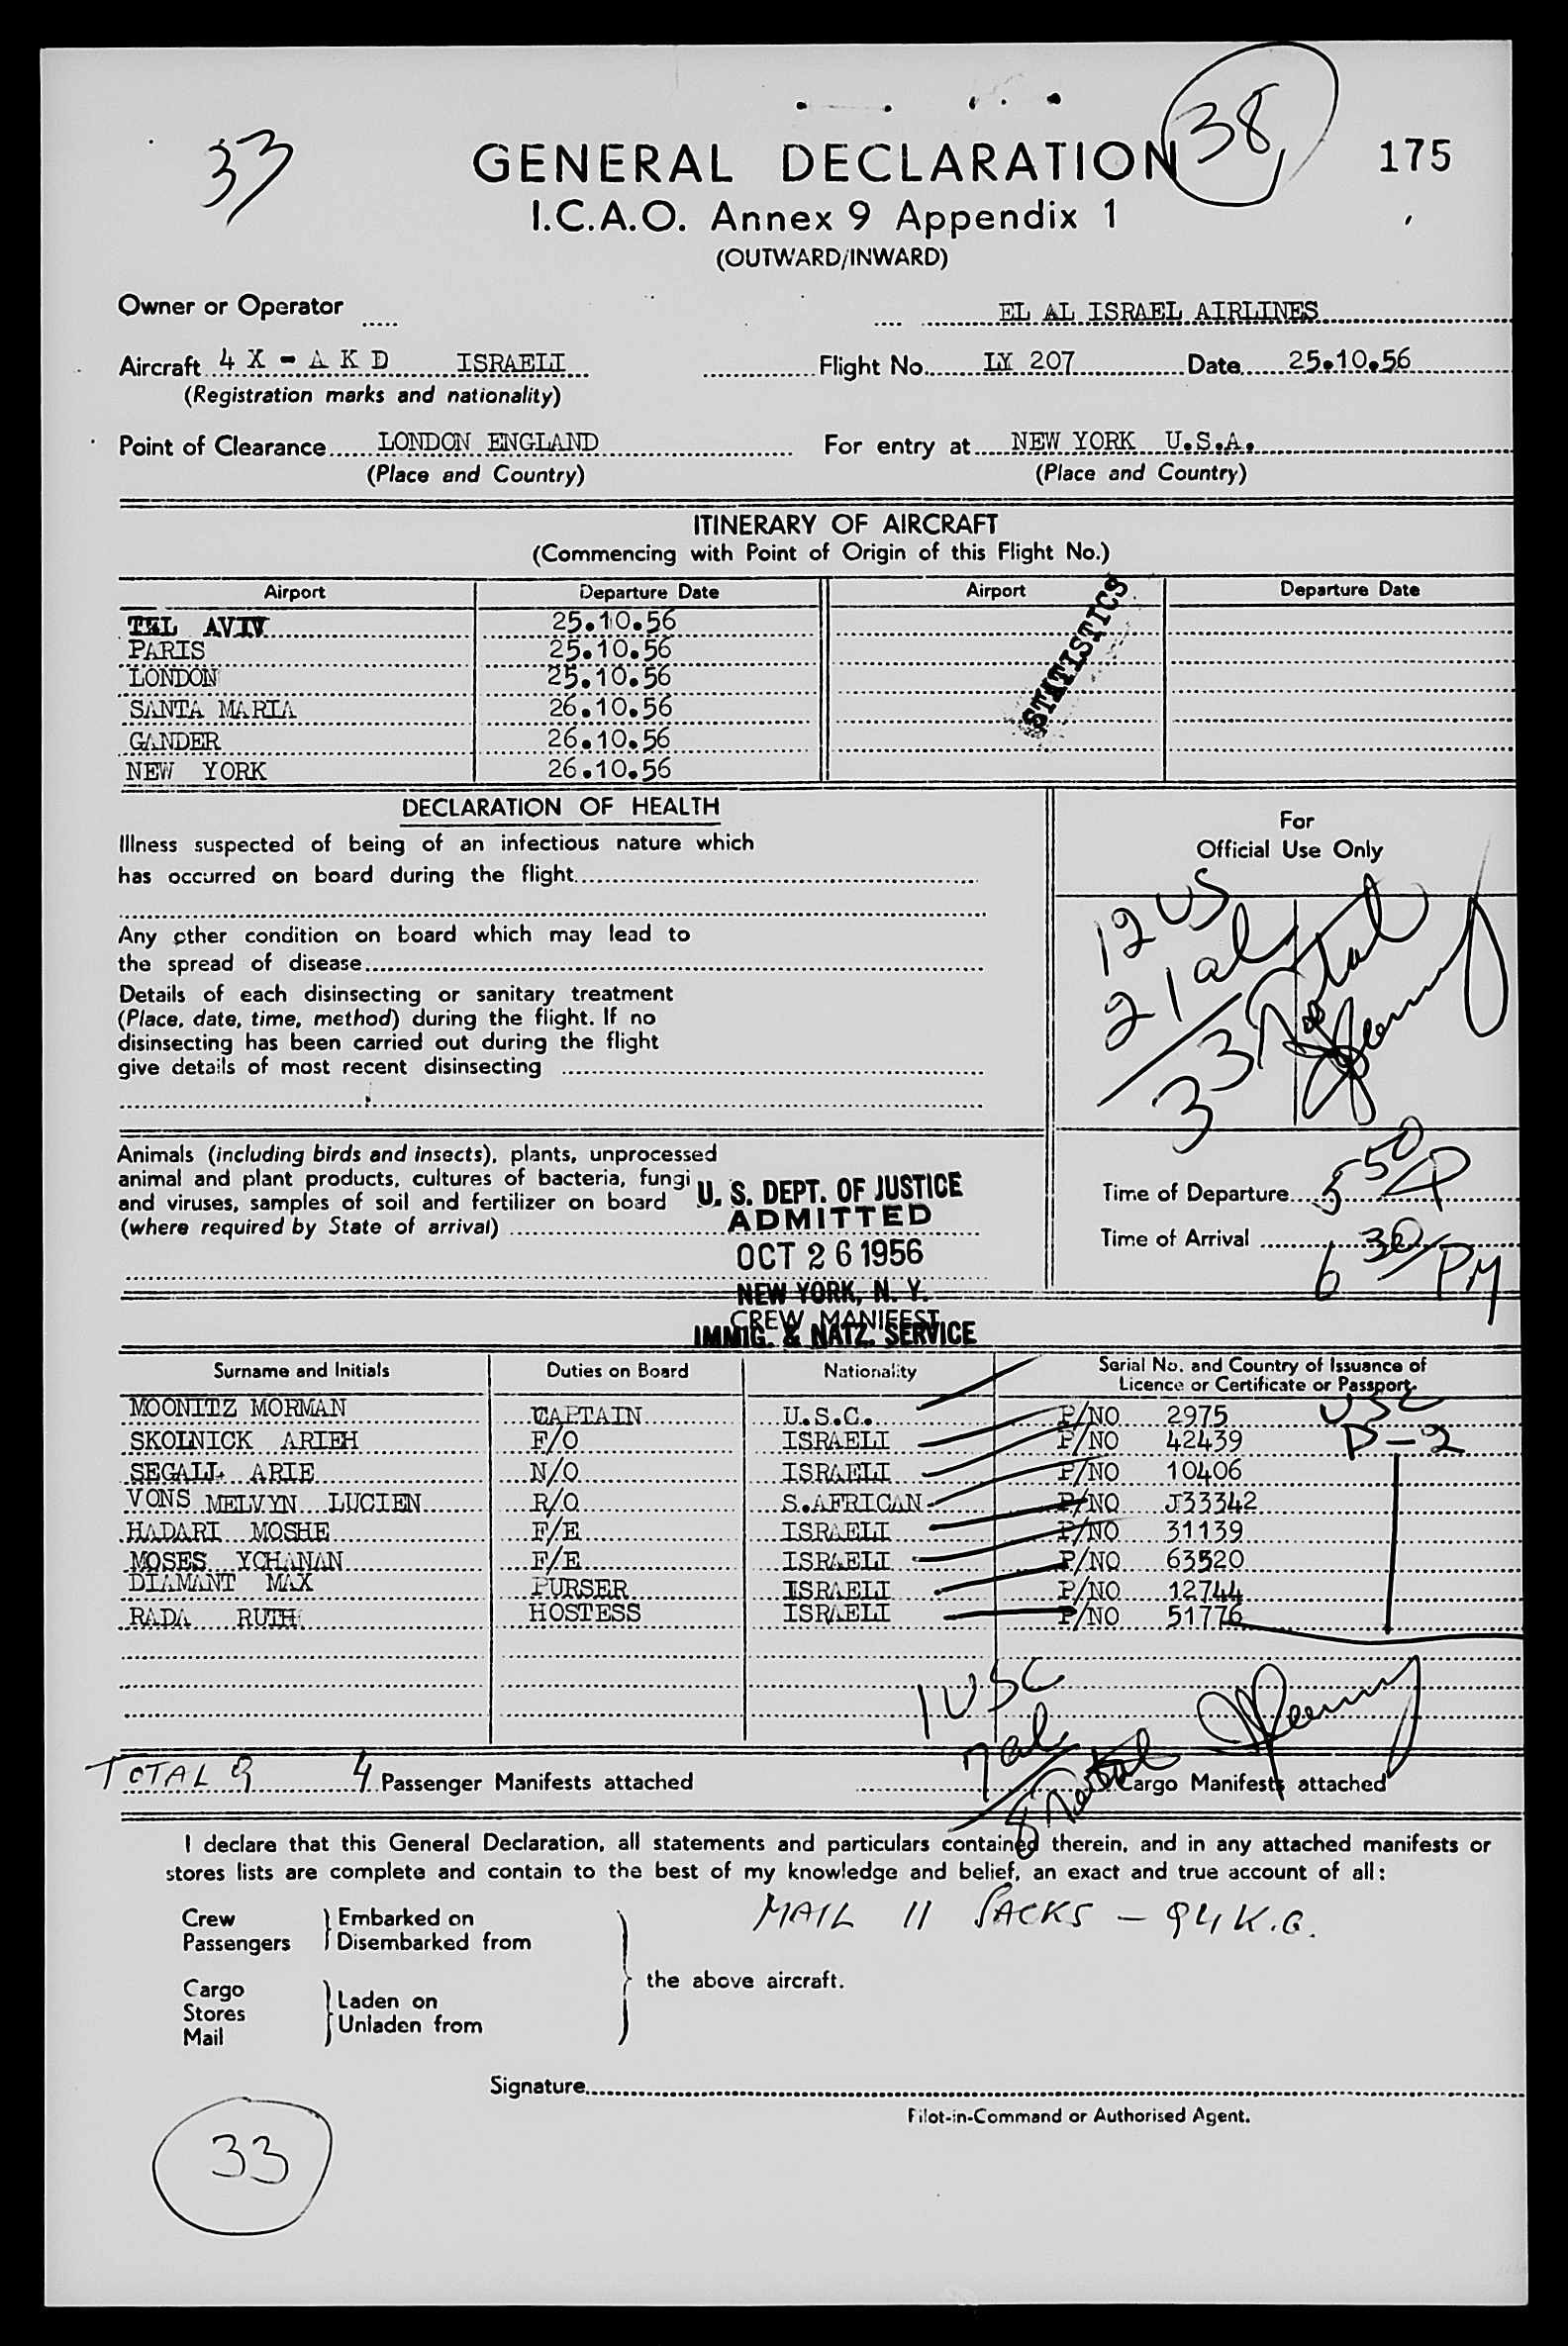 33
38
GENERAL DECLARATION
175
I.C.A.O. Annex 9 Appendix 1
(OUTWARD/INWARD)
Owner or Operator EL AL ISRAEL AIRLINES
Aircraft 4 X - A K D ISRAELI Flight No. LY 207 Date 25.10.56
(Registration marks and nationality)
Point of Clearance LONDON ENGLAND For entry at NEW YORK U.S.A.
(Place and Country) (Place and Country)
ITINERARY OF AIRCRAFT
(Commencing with Point of Origin of this Flight No.)
Airport Departure Date Airport Departure Date
TEL AVIV 25.10.56
PARIS 25.10.56
LONDON 25.10.56
SANTA MARIA 26.10.56
GANDER 26.10.56
NEW YORK 26.10.56
STATISTICS
DECLARATION OF HEALTH
Illness suspected of being of an infectious nature which
has occurred on board during the flight
Any other condition on board which may lead to
the spread of disease
Details of each disinsecting or sanitary treatment
(Place, date, time, method) during the flight. If no
disinsecting has been carried out during the flight
give details of most recent disinsecting
For
Official Use Only
12 US
21 al
33 Total
Animals (including birds and insects), plants, unprocessed
animal and plant products, cultures of bacteria, fungi
and viruses, samples of soil and fertilizer on board
(where required by State of arrival)
U. S. DEPT. OF JUSTICE
ADMITTED
OCT 26 1956
NEW YORK, N. Y.
IMMIG. & NATZ. SERVICE
Time of Departure 5 50/P
Time of Arrival 6 30/PM
CREW MANIFEST
Surname and Initials Duties on Board Nationality Serial No. and Country of Issuance of
Licence or Certificate or Passport.
MOONITZ MORMAN CAPTAIN U.S.C. P/NO 2975 USC
SKOLNICK ARIEH F/O ISRAELI P/NO 42439 D-2
SEGALL ARIE N/O ISRAELI P/NO 10406
VONS MELVYN LUCIEN R/O S.AFRICAN P/NO J33342
HADARI MOSHE F/E ISRAELI P/NO 31139
MOSES YCHANAN F/E ISRAELI P/NO 63520
DIAMANT MAX PURSER ISRAELI P/NO 12744
RADA RUTH HOSTESS ISRAELI P/NO 51776
1 USC
7 al
8 Total
TOTAL 4 Passenger Manifests attached Cargo Manifests attached
I declare that this General Declaration, all statements and particulars contained therein, and in any attached manifests or
stores lists are complete and contain to the best of my knowledge and belief, an exact and true account of all:
MAIL 11 SACKS - 94 K.G.
Crew Embarked on
Passengers Disembarked from
the above aircraft.
Cargo
Stores Laden on
Mail Unladen from
Signature
Pilot-in-Command or Authorised Agent.
33